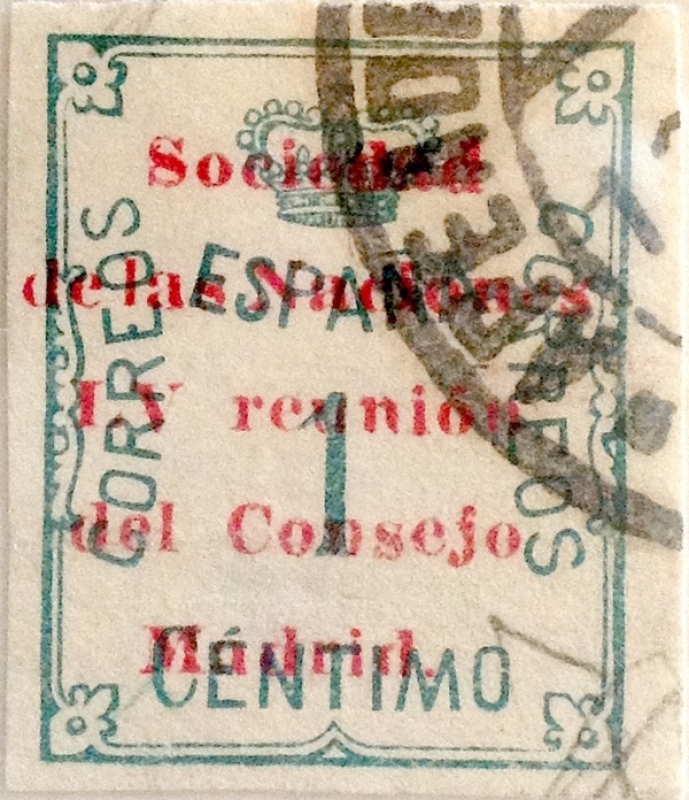 Sociedad
de las Naciones
LV reunión
del Consejo
Madrid.
ESPAÑA
CORREOS
CORREOS
1
CÉNTIMO